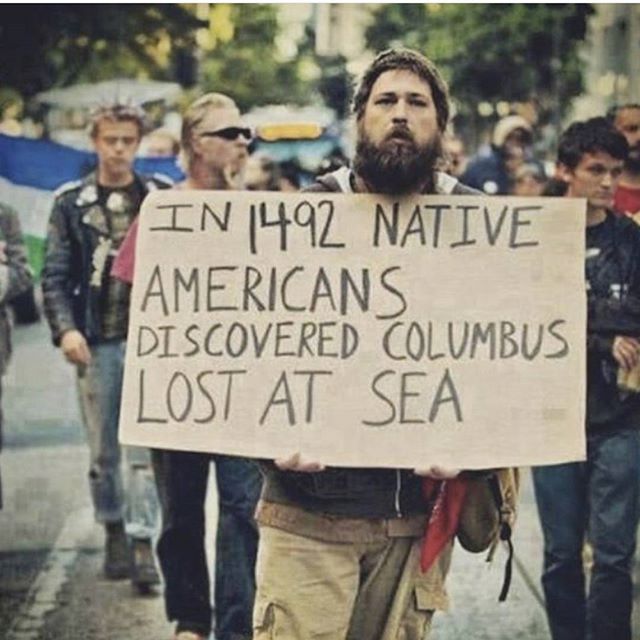 IN 1492 NATIVE
AMERICANS
DISCOVERED COLUMBUS
LOST AT SEA